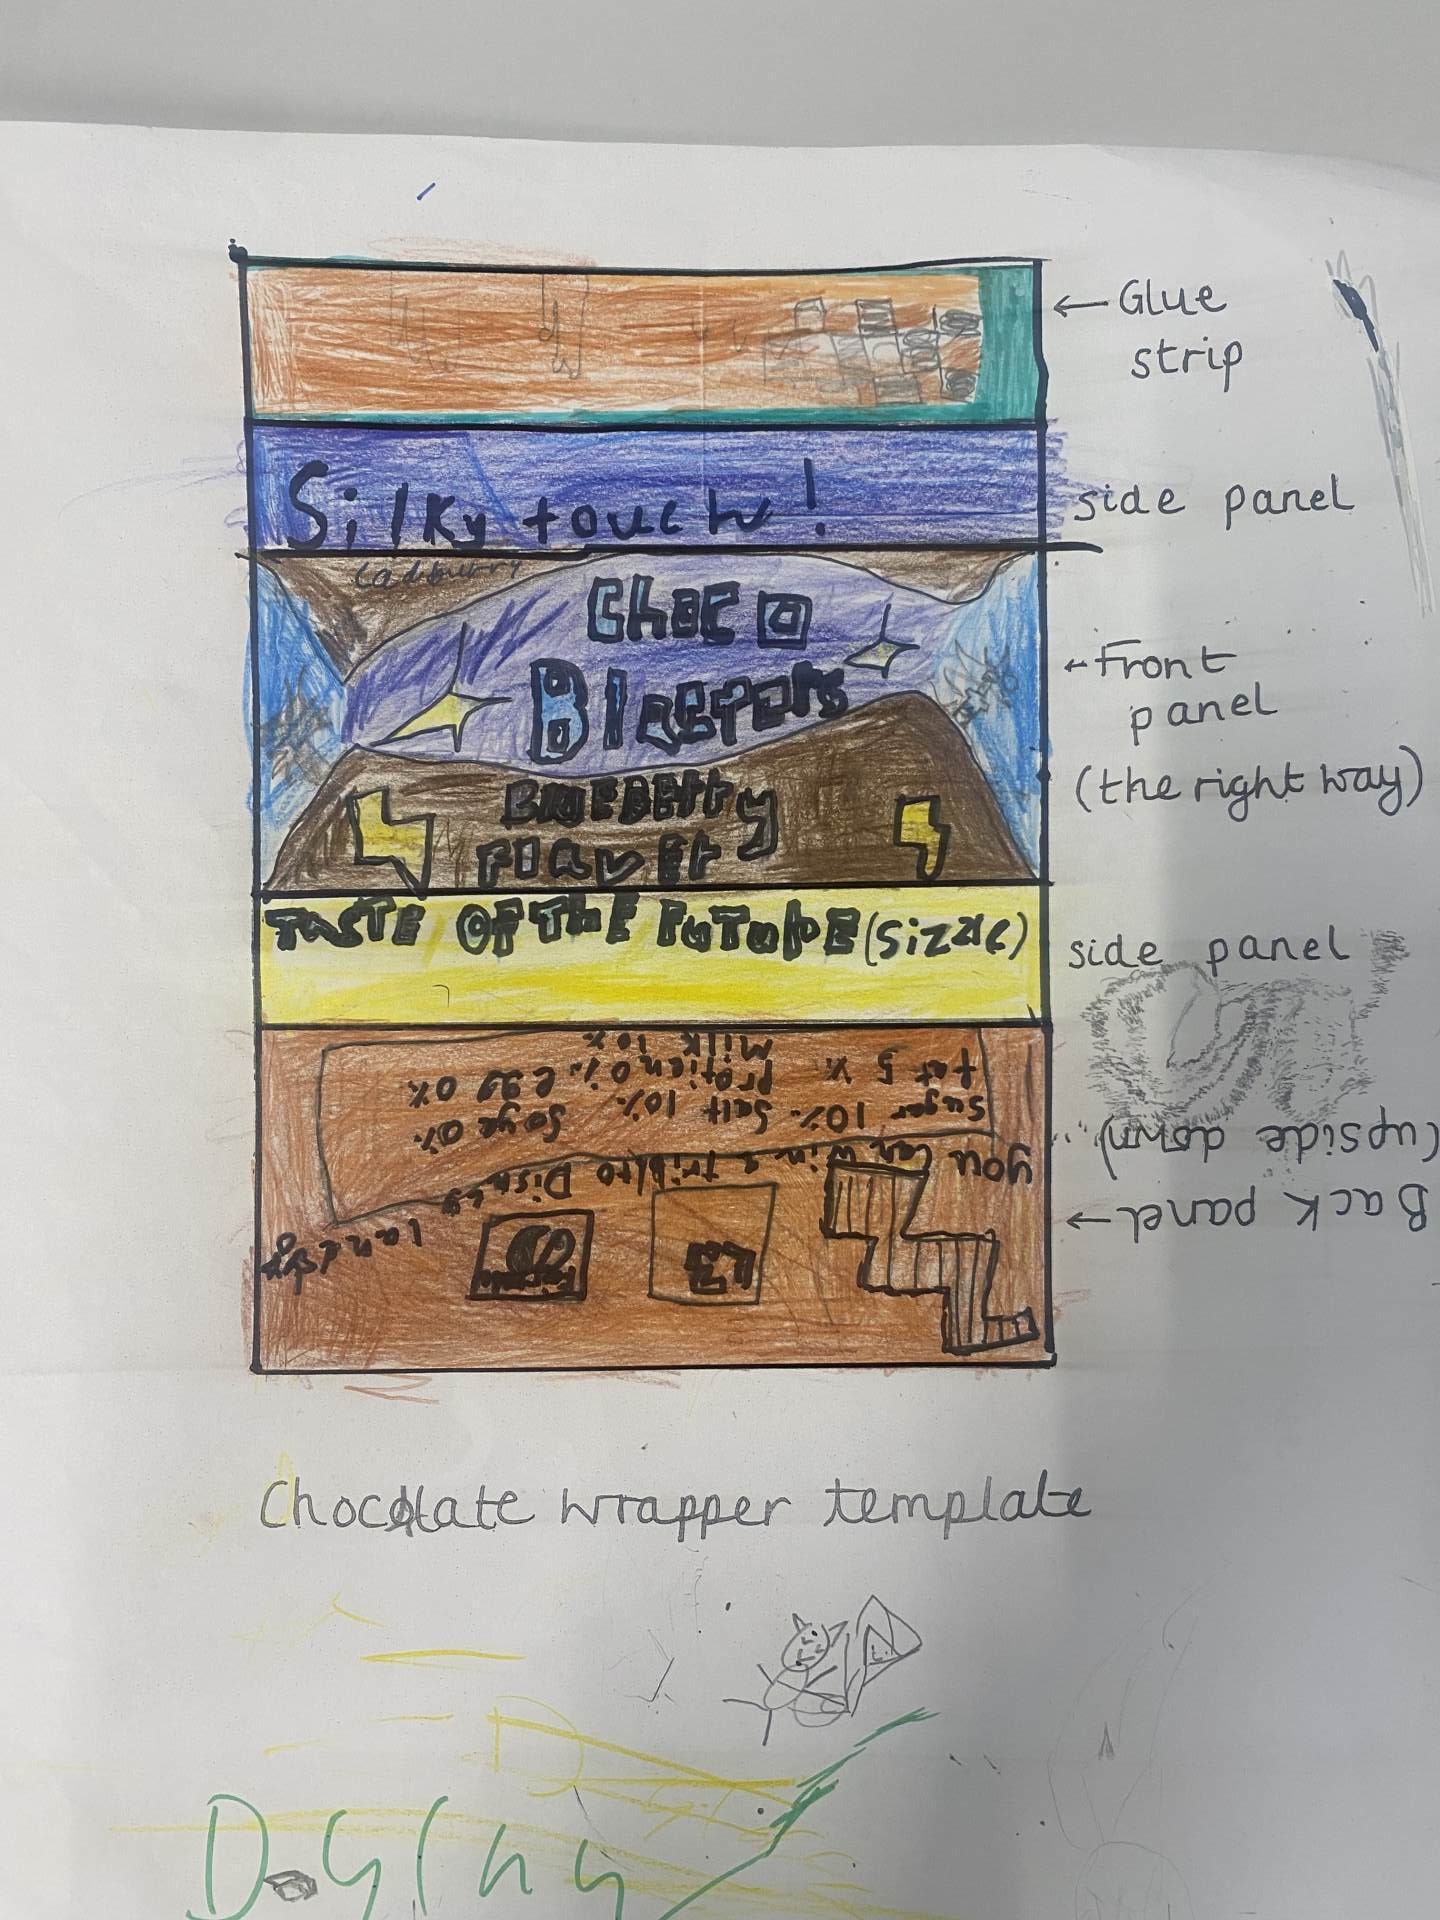 Glue
strip
Silky touch!
side panel
Cadburry
Choco
Blasters
Front
panel
(the right way)
BlueBerry
Flaver
TASTE OF THE FUTURE (Sizzle)
side panel
Back panel
(upside down)
you can win a trip to Disney
land
Sugar 10% Salt 10% Soya 0%
fat 5% Protien 0% egg 0%
Milk 10%
Chocolate wrapper template